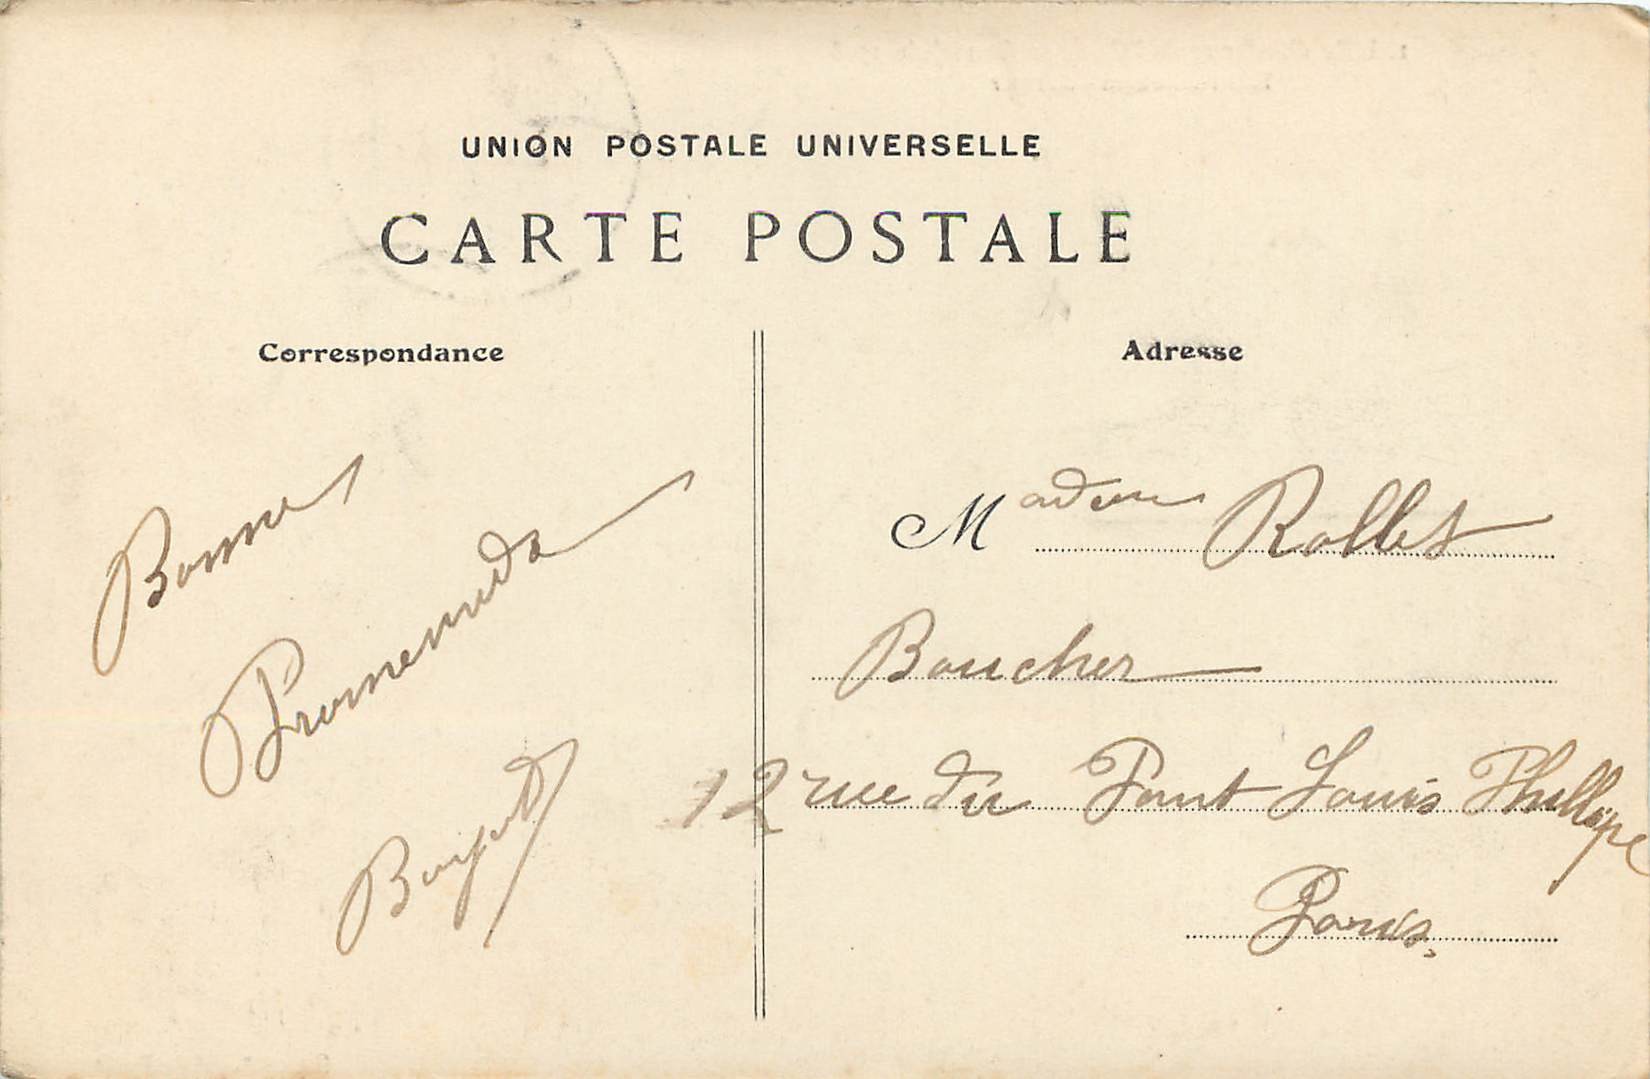 UNION POSTALE UNIVERSELLE
CARTE POSTALE
Correspondance
Adresse
Bonne
Promenade
Madame Rollet
Boucher
12 rue du Pont Louis Phillipe
Paris.